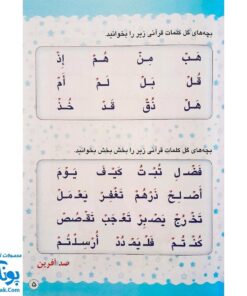 بچه‌های گل کلمات قرآنی زیر را بخوانید
هَبْ مِنْ هُمْ إِذْ
قُلْ بَلْ لَمْ أَمْ
هَلْ ذُقْ قَدْ خُذْ
بچه‌های گل کلمات قرآنی زیر را بخش بخش بخوانید.
فَضْلِ تُبْتُ كَيْفَ يَوْمَ
أَصْلِحْ ذَرْهُمْ تَغْفِرْ يَعْمَلْ
تَخْرُجْ يَصْبِرْ تَعْجَبْ تَقْصُصْ
كُنْتُمْ فَلْيَمْدُدْ أُرْسِلْتُمْ
صد آفرین
۵